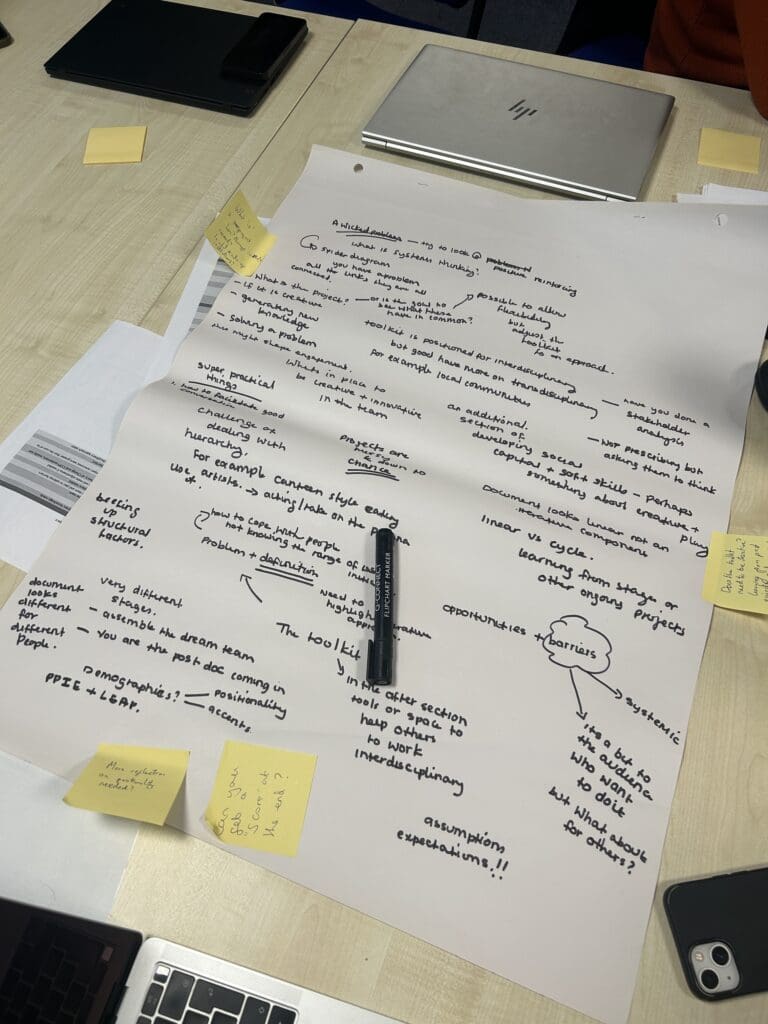 hp
A wicked problem – try to look @
positive reinforcing
what is systems thinking?
Go spider diagram
you have a problem
all the links they are all
connected.
- What is the project? – or is the goal to
see what these
have in common?
possible to allow
flexibility
but
adjust the
toolkit
to an approach.
- If it is creative
- generating new
knowledge
- solving a problem
this might shape engagement.
toolkit is positioned for interdisciplinary
but good have more on transdisciplinary
for example local communities
have you done a
stakeholder
analysis
- Not prescribing but
asking them to think
super practical
things
1. how to facilitate good
conversation
Whats in place to
be creative + innovative
in the team
challenge of
dealing with
hierarchy.
Projects are
messy
& down to
chance
an additional
section of
developing social
capital + soft skills – perhaps
something about creative +
play
For example canteen style eating
use of artists. → acting/take on the
Document looks linear not an
iterative component
linear vs cycle.
learning from stage or
other ongoing projects
beefing
up
structural
factors.
how to cope with people
not knowing the range of
Problem + definition
Need to
highlight
The toolkit
in the after section
tools or space to
help others
to work
interdisciplinary
opportunities + barriers
systemic
its a but to
the audience
who want
to do it
but what about
for others?
document
looks
different
for
different
People.
very different
stages.
- assemble the dream team
- You are the post doc coming in
Demographics?
positionality
accents.
PPIE + LEAP.
assumptions
expectations.!!
FLIPCHART MARKER
More reflection
on
needed?
Can you
"score" at
the end?
Does the toolkit
need to be